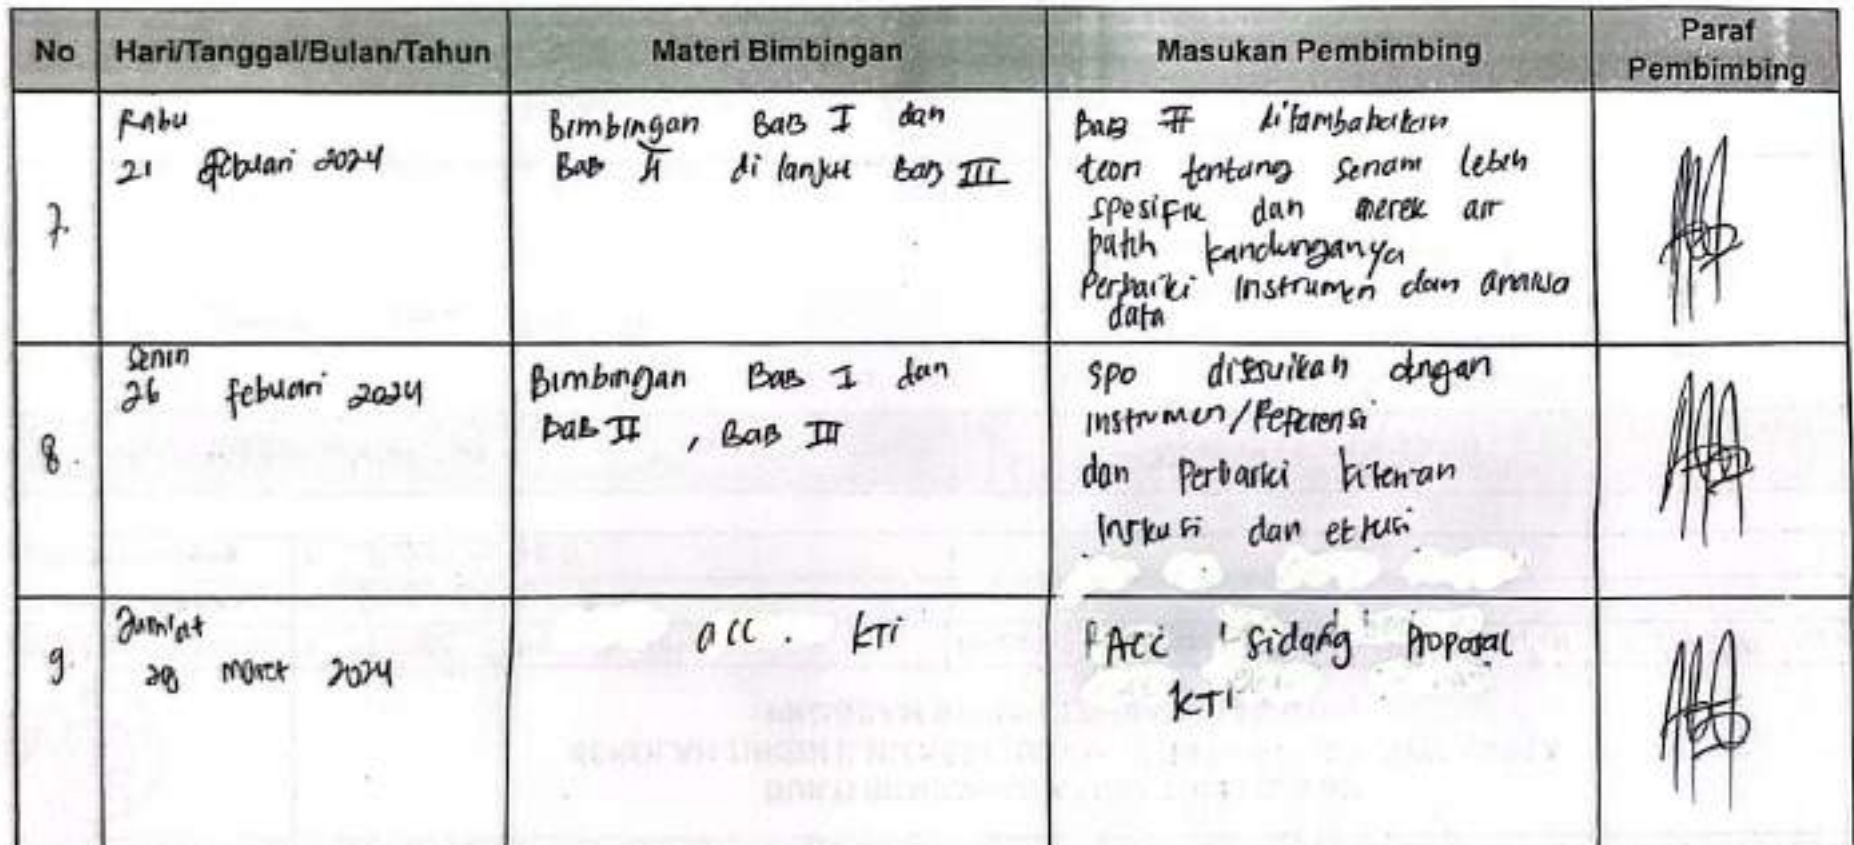 No Hari/Tanggal/Bulan/Tahun Materi Bimbingan Masukan Pembimbing Paraf
Pembimbing
7.
Rabu
21 febuari 2024
Bimbingan BAB I dan
BAB II di lanjut BAB III
BAB II ditambahakan
teori tentang senam lebih
spesifik dan merek air
putih kandunganya
Perbaiki instrumen dan analisa
data
8.
Senin
26 febuari 2024
Bimbingan BAB I dan
BAB II , BAB III
SPO disesuikan dengan
instrumen/Referensi
dan Perbaiki
dan
9.
Jum'at
maret 2024
acc. KTi
ACC Sidang Proposal
KTI